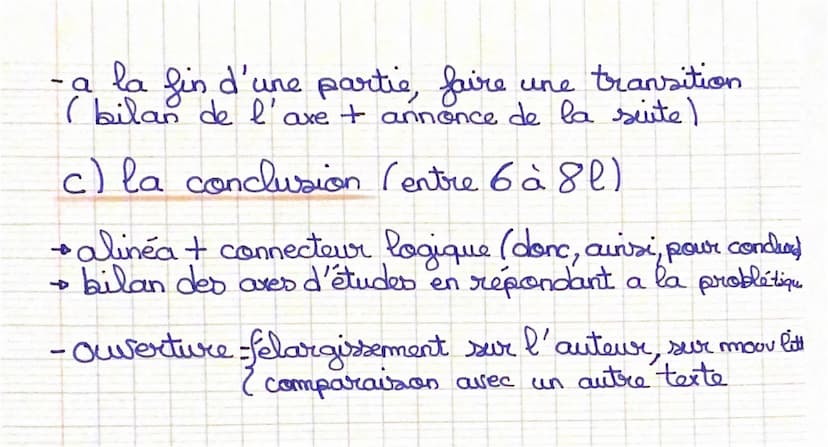 - a la fin d'une partie, faire une transition
( bilan de l'axe + annonce de la suite)
c) la conclusion (entre 6 à 8l)
→ alinéa + connecteur logique (donc, ainsi, pour conclure)
→ bilan des axes d'études en répondant a la problétique
- ouverture = { élargissement sur l'auteur, sur mouv litt
{ comparaison avec un autre texte